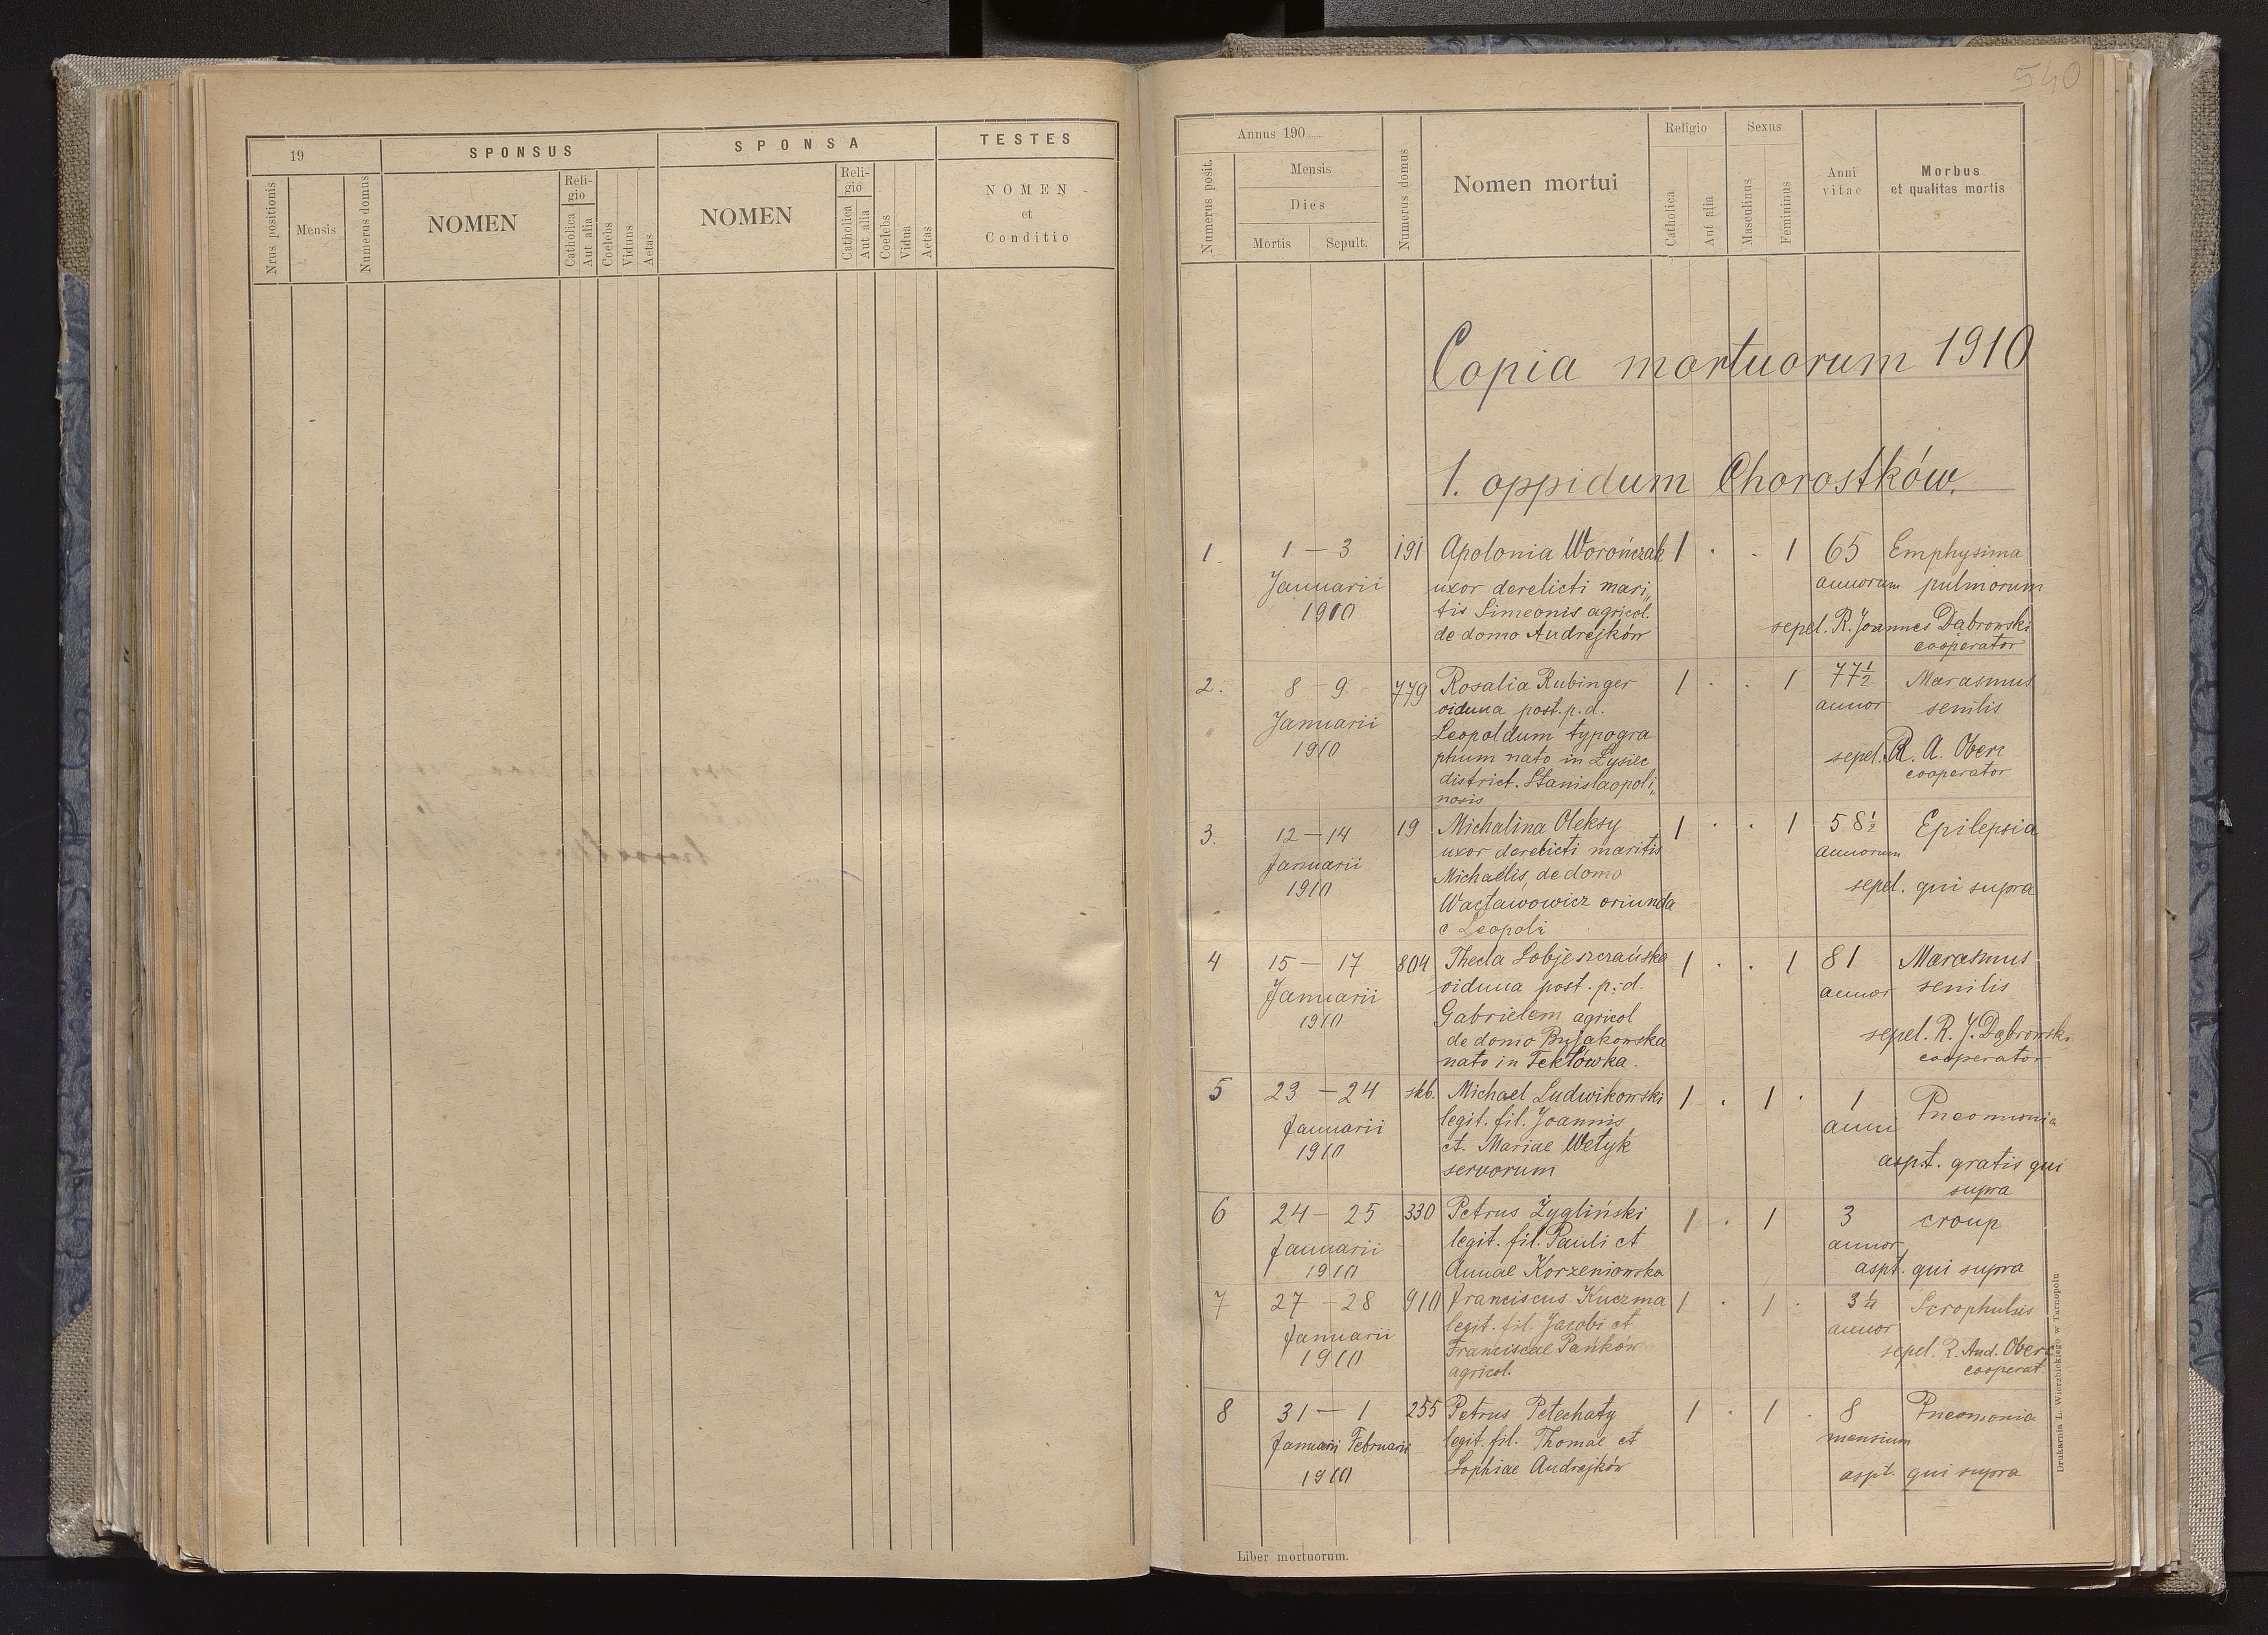 19
SPONSUS
SPONSA
TESTES
Nrus positionis
Mensis
Numerus domus
NOMEN
Reli-
gio
Catholica
Aut alia
Coelebs
Viduus
Aetas
NOMEN
Reli-
gio
Catholica
Aut alia
Coelebs
Vidua
Aetas
NOMEN
et
Conditio
540
Annus 190
Numerus posit.
Mensis
Dies
Mortis Sepult.
Numerus domus
Nomen mortui
Religio
Catholica
Aut alia
Sexus
Masculinus
Femininus
Anni
vitae
Morbus
et qualitas mortis
Copia mortuorum 1910
1. oppidum Chorostków.
1. 1 – 3 191 Apolonia Worończak 1 . . 1 65 Emphysima
Januarii uxor derelicti mari„ annorum pulmorum
1910 tis Simeonis agricol. sepel. R. Joannes Dabrowski
de domo Andrejków cooperator
2. 8 – 9 779 Rosalia Rubinger 1 . . 1 77½ Marasmus
Januarii vidua post. p. d. annor senilis
1910 Leopoldum typogra sepel. R. A. Oberc
phum nato in Łysiec cooperator
district. Stanislaopoli„
nosis
3. 12 – 14 19 Michalina Oleksy 1 . . 1 58½ Epilepsia
Januarii uxor derelicti maritis annorum
1910 Michaelis, de domo sepel. qui supra
Wacławowicz oriunda
e Leopoli
4 15 – 17 804 Thecla Sobjeszczańska 1 . . 1 81 Marasmus
Januarii vidua post. p. d. annor senilis
1910 Gabrielem agricol sepel. R. J. Dąbrowski
de domo Bujakowska cooperator
nato in Teklówka.
5 23 – 24 skb. Michael Ludwikowski 1 . 1 . 1 Pneomonia
Januarii legit. fil. Joannis anni
1910 et. Mariae Wetyk aspt. gratis qui
servorum supra
6 24 – 25 330 Petrus Żygliński 1 . 1 3 croup
Januarii legit. fil. Pauli et annor
1910 Annae Korzeniowska aspt. qui supra
7 27 – 28 910 Franciscus Kuczma 1 . 1 . 3¼ Scrophulus
Januarii legit. fil. Jacobi et annor
1910 Franciscae Pańków sepel. R. And. Oberc
agricol. cooperat.
8 31 – 1 255 Petrus Petechaty 1 . 1 . 8 Pneomonia
Januarii Februarii legit. fil. Thomae et mensium
1910 Sophiae Andrejków aspt. qui supra
Liber mortuorum.
Drukarnia L. Wierzbickiego w Tarnopolu